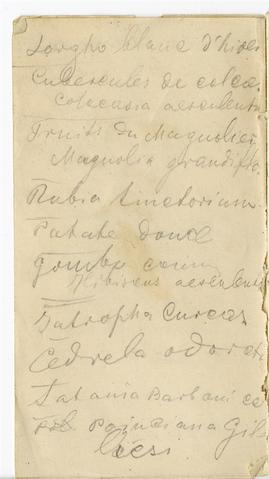 Sorgho blanc d'hiver
Tubercules de coloca
Colocasia aesculenta
Fruits du Magnolier
Magnolia grandiflo
Rubia tinctorium
Patate douce
Gombo comm
Hibiscus aesculent
Jatropha Curcas
Cedrela odorat
Latania Borboni ca
Poinciana Gil
liesi